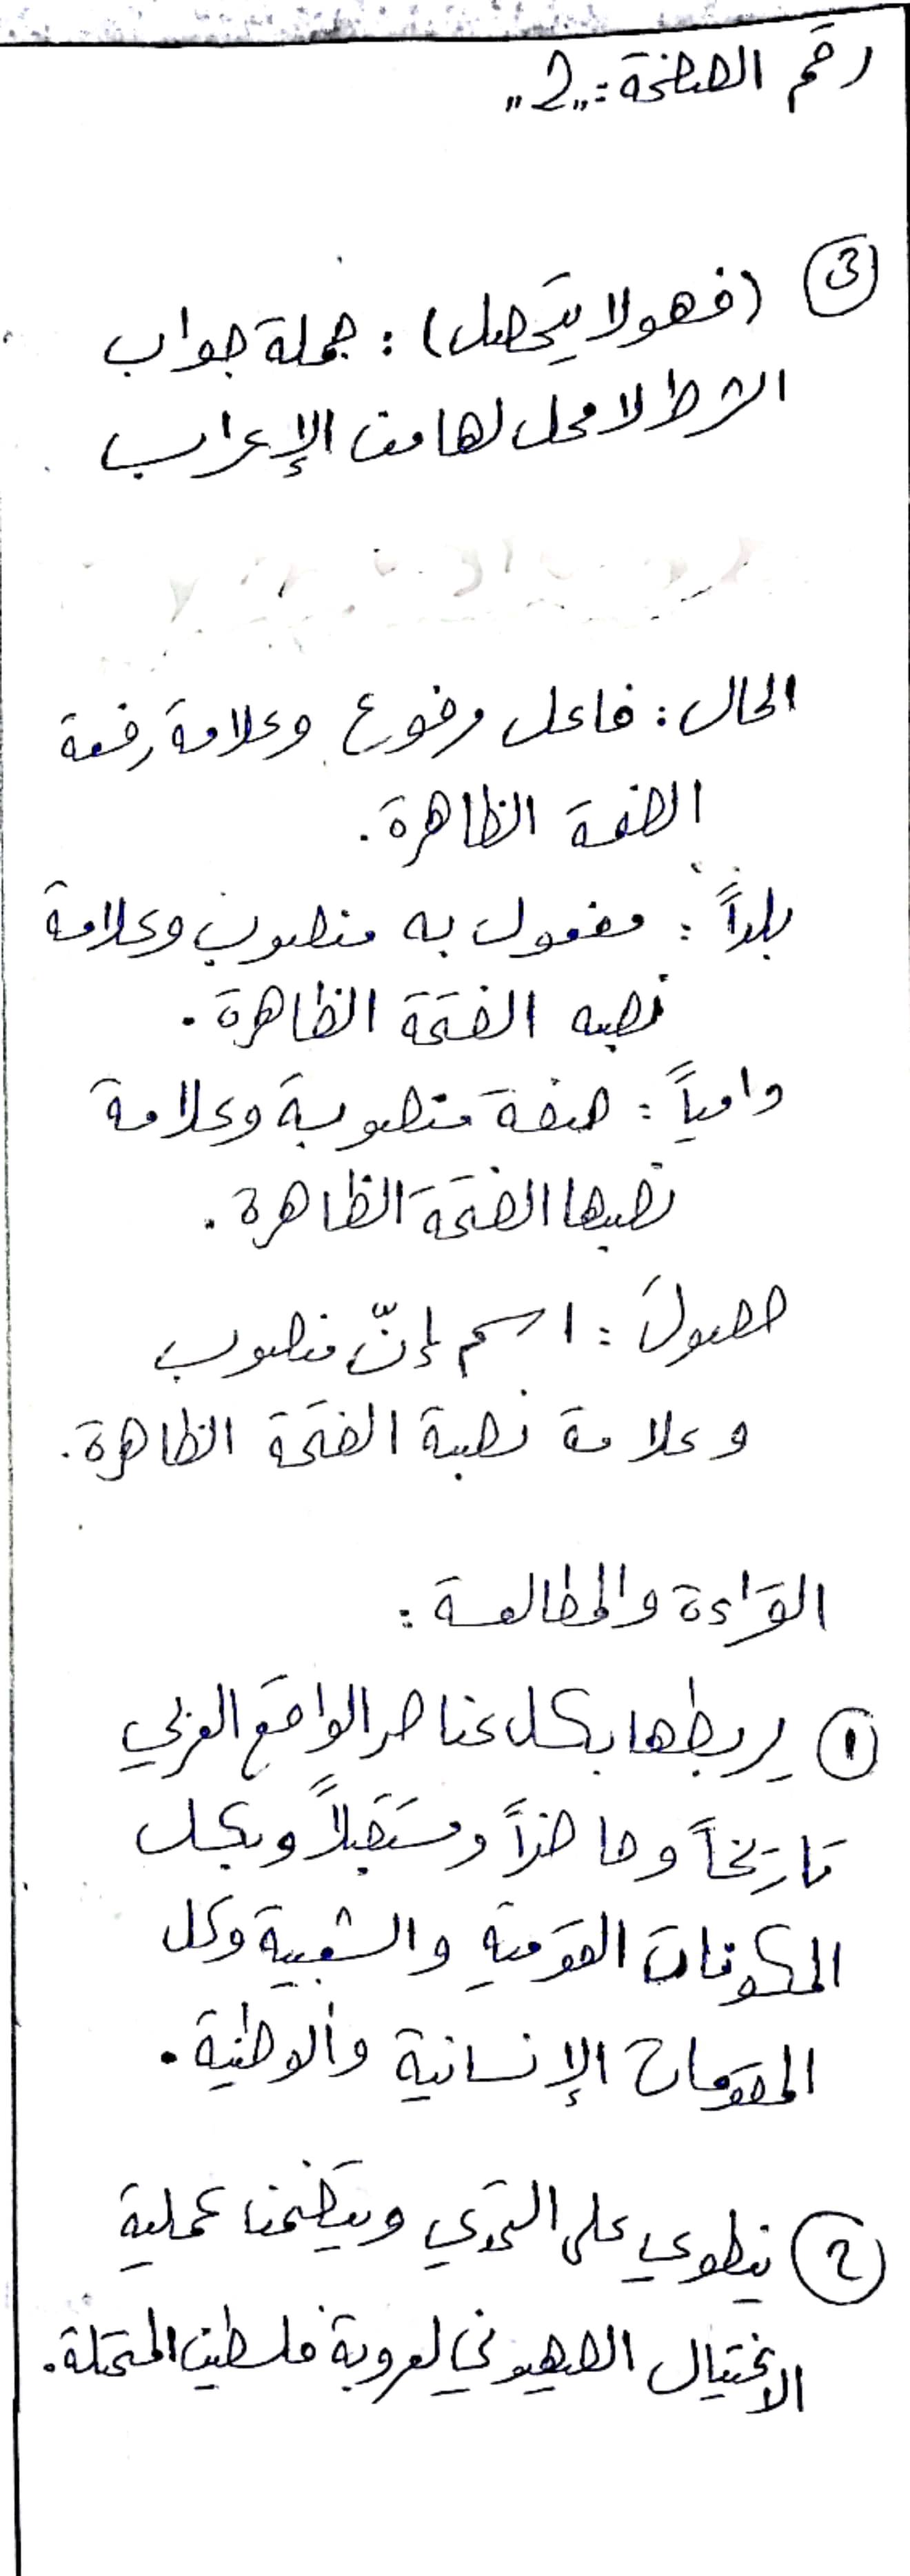 رقم الصفحة: "2"
③ (فهو لا يتحصل): جملة جواب
الشرط لا محل لها من الإعراب
الحال: فاعل مرفوع وعلامة رفعة
الضمة الظاهرة.
بلداً: مفعول به منصوب وعلامة
نصبه الفتحة الظاهرة.
وامياً: صفة منصوبة وعلامة
نصبها الفتحة الظاهرة.
حصولَ: اسم إنّ منصوب
وعلامة نصبة الفتحة الظاهرة.
القراءة والمطالعة:
① يربطها بكل عناصر الواقع العربي
تاريخاً وحاضراً ومستقبلاً وبكل
المكونات القومية والشعبية وكل
المقومات الإنسانية والوطنية.
② ينطوي على التحدي ويتضمن عملية
الاغتيال الصهيوني لعروبة فلسطين المحتلة.